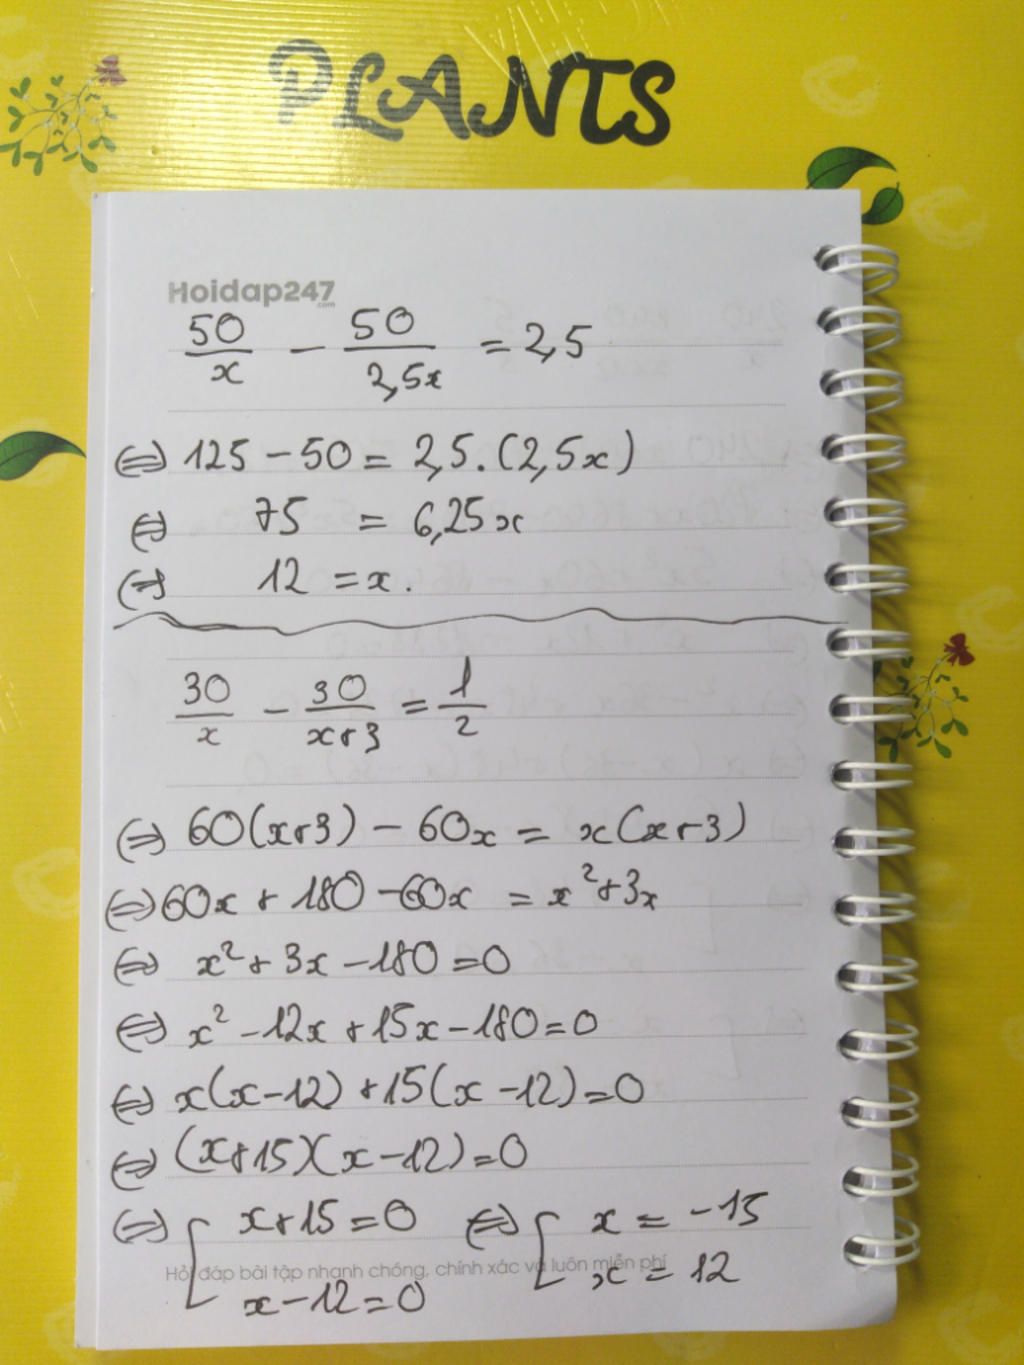 PLANTS
Hoidap247
.com
50/x - 50/2,5x = 2,5
⇔ 125 - 50 = 2,5.(2,5x)
⇔ 75 = 6,25x
⇔ 12 = x.
30/x - 30/x+3 = 1/2
⇔ 60(x+3) - 60x = x(x+3)
⇔ 60x + 180 - 60x = x²+3x
⇔ x² + 3x - 180 = 0
⇔ x² - 12x + 15x - 180 = 0
⇔ x(x-12) + 15(x-12) = 0
⇔ (x+15)(x-12) = 0
⇔ [ x+15 = 0 ⇔ [ x = -15
Hỏi đáp bài tập nhanh chóng, chính xác và luôn miễn phí
x-12 = 0 x = 12